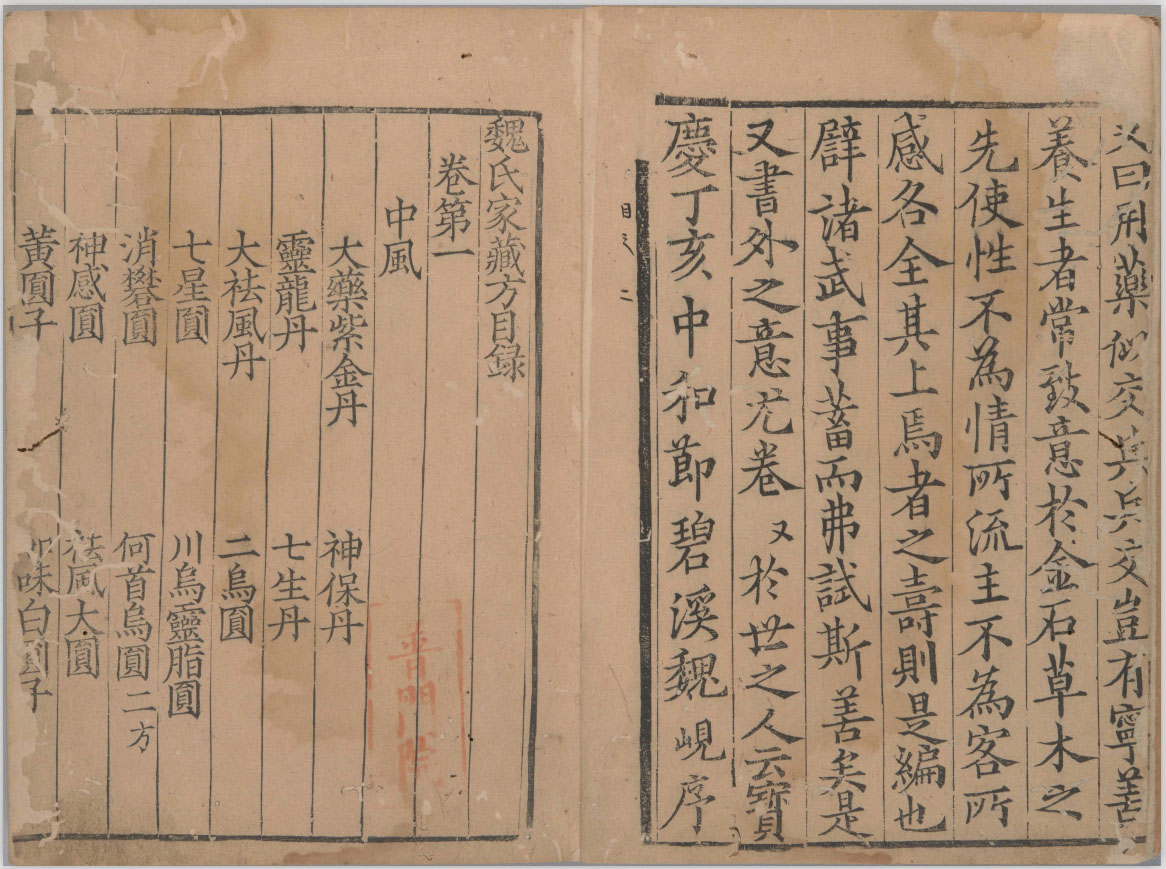 曰用藥似交兵兵交豈有寧善
養生者常致意於金石草木之
先使性不為情所流主不為客所
感各全其上焉者之壽則是編也
辟諸武事蓄而弗試斯善矣是
又書外之意尤卷又於世之人云寶
慶丁亥中和節碧溪魏峴序
目 二
魏氏家藏方目録
卷第一
中風
大藥紫金丹 神保丹
靈龍丹 七生丹
大祛風丹 二烏圓
七星圓 川烏靈脂圓
消礬圓 何首烏圓二方
神感圓 祛風大圓
黃圓子 味白圓子
普門院